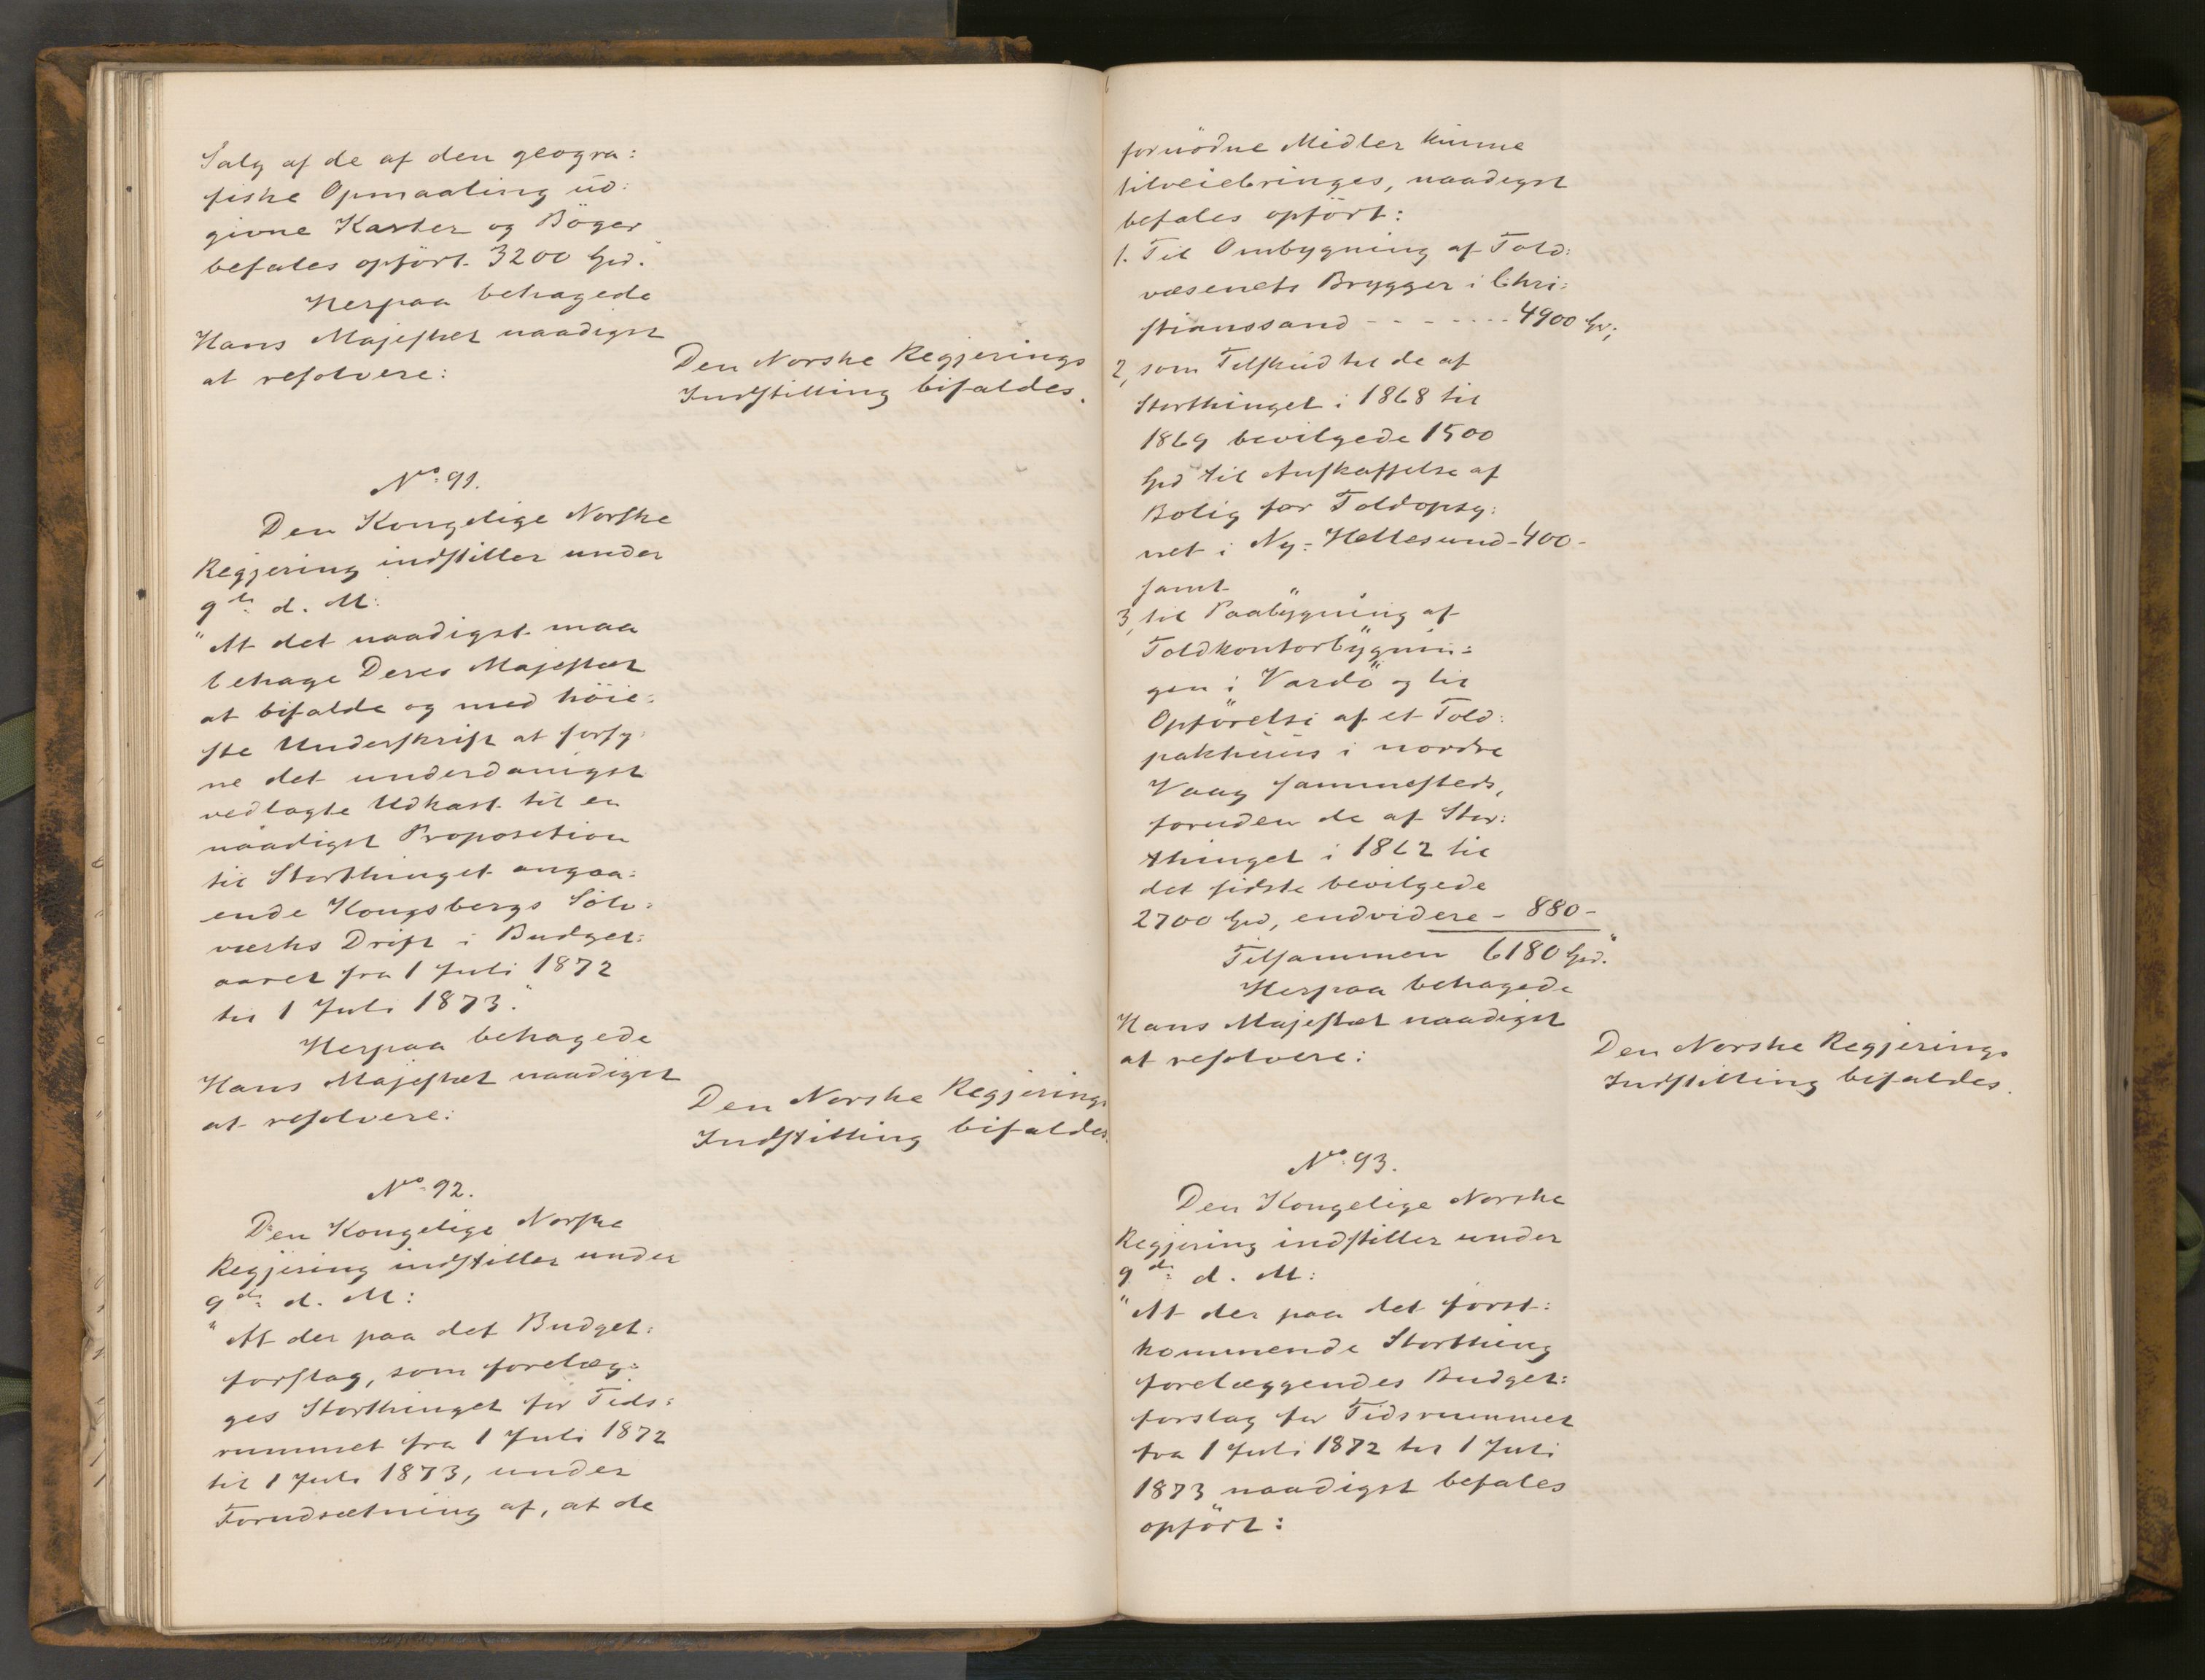 Salg af de af den geogra:
fiske Opmaaling ud:
givne Karter og Böger
befales opfört 3200 Spd."
Herpaa behagede
Hans Majestæt naadigst
at resolvere:
Den Norske Regjerings
Indstilling bifaldes.
No. 91.
Den Kongelige Norske
Regjering indstiller under
9de d. M:
"At det naadigst maa
behage Deres Majestæt
at bifalde og med höie:
ste Underskrift at forsy:
ne det underdanigst
vedlagte Udkast til en
naadigst Proposition
til Storthinget angaa:
ende Kongsbergs Sölv:
værks Drift i Budget:
aaret fra 1 Juli 1872
til 1 Juli 1873."
Herpaa behagede
Hans Majestæt naadigst
at resolvere:
Den Norske Regjerings
Indstilling bifaldes.
No. 92.
Den Kongelige Norske
Regjering indstiller under
9de d. M:
"At der paa det Budget:
forslag, som forelæg:
ges Storthinget for Tids:
rummet fra 1 Juli 1872
til 1 Juli 1873, under
Forudsætning af, at de
fornödne Midler kunne
tilveiebringes, naadigst
befales opfört:
1. Til Ombygning af Told:
væsenets Brygger i Chri:
stianssand - - - - - - - 4900 Spd;
2, som Tilskud til de af
Storthinget i 1868 til
1869 bevilgede 1500
Spd til Anskaffelse af
Bolig for Toldopsy:
net i Ny-Hellesund - 400 -
samt
3, til Paabygning af
Toldkontorbygnin:
gen i Vardö og til
Opförelse af et Told:
pakhuus i nordre
Vaag sammesteds,
foruden de af Stor:
thinget i 1862 til
det sidste bevilgede
2700 Spd, endvidere - 880 -
Tilsammen 6180 Spd."
Herpaa behagede
Hans Majestæt naadigst
at resolvere:
Den Norske Regjerings
Indstilling bifaldes.
No. 93.
Den Kongelige Norske
Regjering indstiller under
9de d. M:
"At der paa det först:
kommende Storthing
forelæggendes Budget:
forslag for Tidsrummet
fra 1 Juli 1872 til 1 Juli
1873 naadigst befales
opfört: